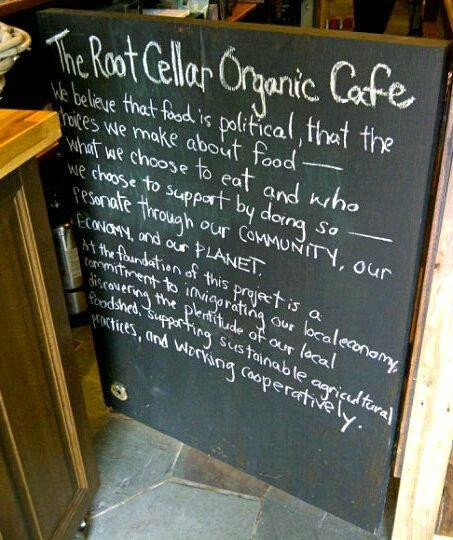 The Root Cellar Organic Cafe
We believe that food is political, that the
choices we make about food —
what we choose to eat and who
we choose to support by doing so —
resonate through our COMMUNITY, our
ECONOMY, and our PLANET.
At the foundation of this project is a
commitment to invigorating our local economy,
discovering the plentitude of our local
foodshed, supporting sustainable agricultural
practices, and working cooperatively.